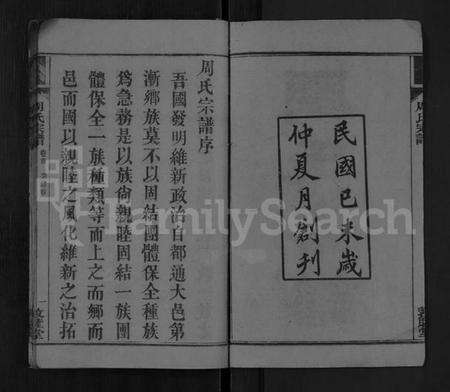 民國己未歲
仲夏月創刊
周氏宗譜
周氏宗譜序
吾國發明維新政治自都通大邑第
漸鄉族莫不以固結團體保全種族
為急務是以族尚親睦固結一族團
體保全一族種類等而上之而鄉而
邑而國以親睦之風化維新之治拓
周氏宗譜
FamilySearch